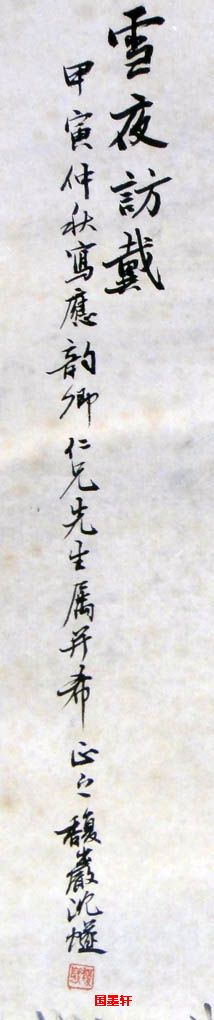 雪夜訪戴
甲寅仲秋寫應韵卿仁兄先生属并希正之馥巖沈燧
国墨轩